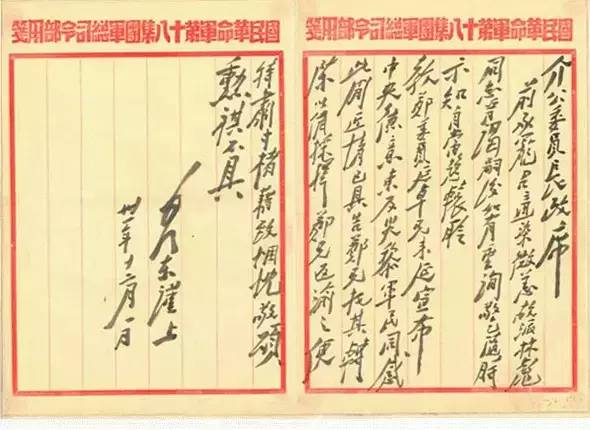 國民革命軍第十八集團軍總司令部用箋
介公委員長政席
前承寵召適染微恙故派林彪
同志晋謁嗣後如有垂詢敬乞隨時
示知自當趨轅聆
教鄭委員延卓兄來延宣布
中央德意惠及災黎軍民同感
此間近情已具告鄭兄托其轉
陳以備採擇鄭兄返渝之便
國民革命軍第十八集團軍總司令部用箋
特肅寸楮藉致悃忱敬頌
勳祺不具
毛澤東謹上
卅一年十二月一日